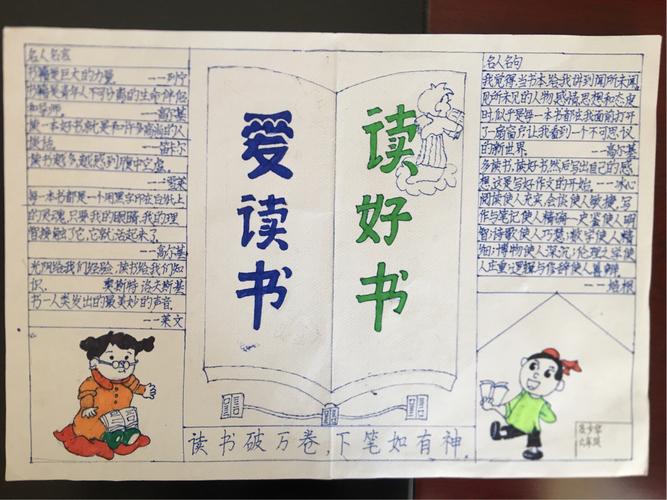 名人名言
书籍是巨大的力量 ——列宁
书籍是青年人不可分离的生命伴侣
和导师。 ——高尔基
读一本好书就是和许多高尚的人
谈话。 ——笛卡尔
读书越多越感到腹中空虚。
——雪莱
每一本书都是一个用黑字印在白纸上
的灵魂,只要我的眼睛、我的理
智接触了它,它就活起来了。
——高尔基
光阴给我们经验,读书给我们知
识。 奥斯特洛夫斯基
书—人类发出的最美妙的声音
——莱文
爱读书
读好书
名人名句
我觉得,当书本给我讲到闻所未闻,
见所未见的人物、感情、思想和态度
时,似乎是每一本书都在我面前打开
了一扇窗户,让我看到一个不可思议
的新世界。 ——高尔基
多读书,读好书,然后写出自己的感
想,这是写好作文的开始。——冰心
阅读使人充实,会谈使人敏捷,写
作与笔记使人精确…史鉴使人明
智;诗歌使人巧慧;数学使人精
细;博物使人深沉;伦理之学使
人庄重;逻辑与修辞使人善辩。
——培根
读书破万卷,下笔如有神。
六年级